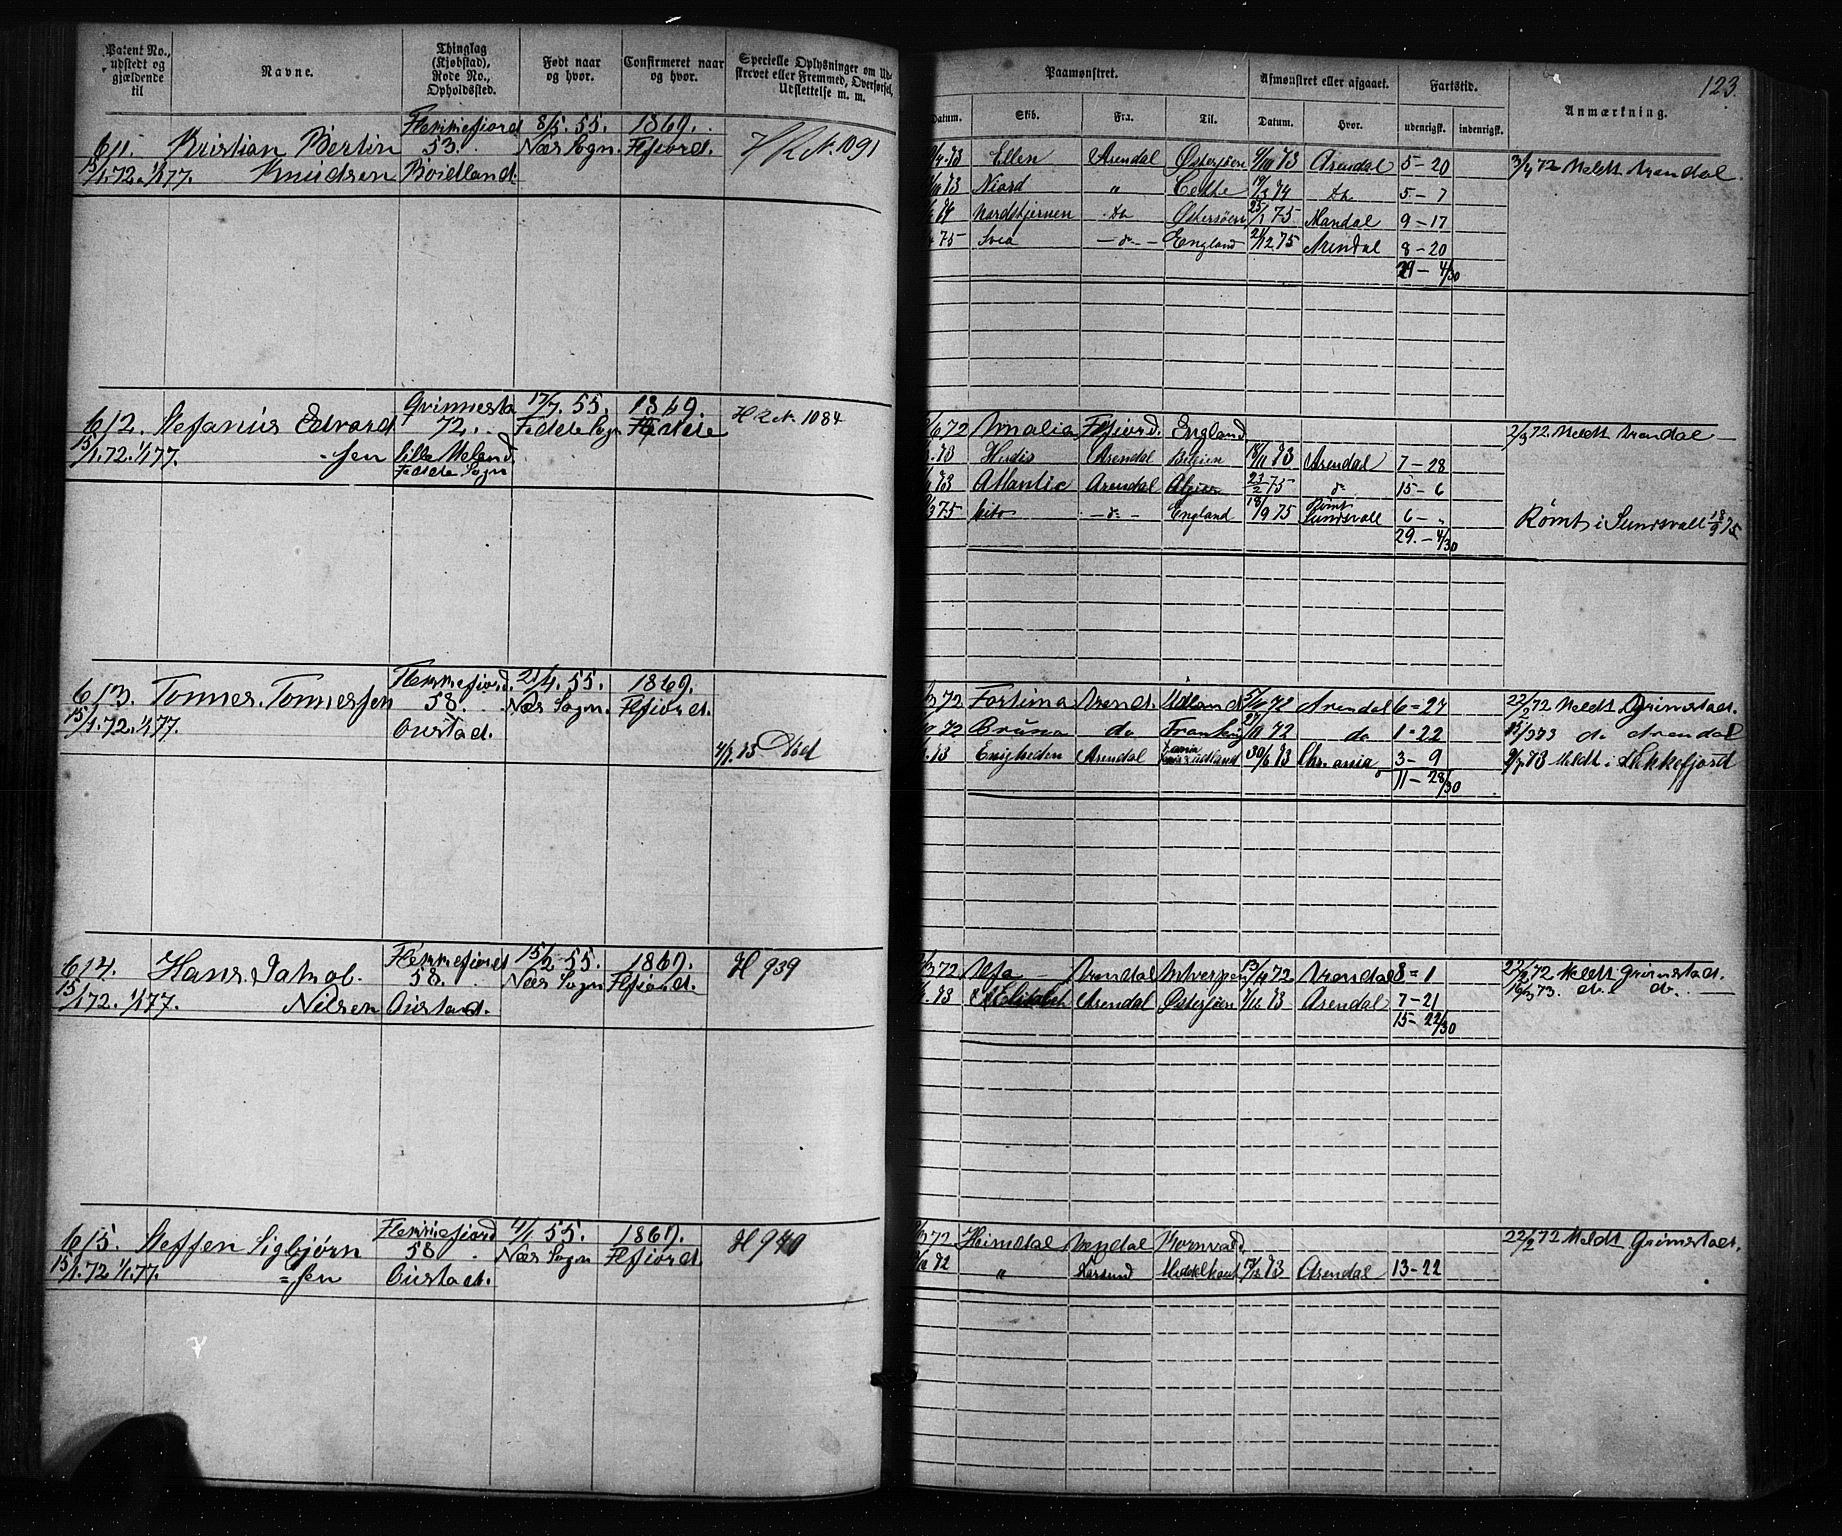 Patent No., udstedt og gjældende til
Navne.
Thinglag (Kjøbstad), Rode No., Opholdssted.
Født naar og hvor.
Confirmeret naar og hvor.
Specielle Oplysninger om Udskrevet eller Fremmed, Overførsel, Udslettelse m. m.
Paamønstret.
Datum.
Skib.
Fra.
Til.
Afmønstret eller afgaaet.
Datum.
Hvor.
Fartstid.
udenrigsk.
indenrigsk.
Anmærkning.
123.
611. Kristian Bertin Flekkefiord 8/5. 55. 1869.
15/1.72. 1/1 77. Knudsen 53. Næs Sogn. Flfjord. H R No. 1091
Røidland
73 Ellen Arendal Østersjøen 73 Arendal 5-20 3/4 72 Meldt Arendal.
73 Niord " 74 Do 5-7
74 Nordstjernen Do Østersøen 75 Mandal 9-17
75 Svea -do- England 21/12 75 Arendal 8-20
29-4/30
612. Stefanus Edvard 17/7. 55. 1869. H R No 1084
15/1.72. 1/1 77. -sen 72. Feddesogn Fedde
Lille Meland
Fedde Sogn
72 Amalia Flfjord. England 2/3 72 Meldt Arendal
73 Herdis Arendal Belgien 18/11 73 Arendal 7-28
73 Atlantic Arendal Algier 23/2 75 do 15-6
75 Cito -do- England 75 Rømt Sundsvall 6-" Rømt i Sundsvall 75
29.-4/30
613. Tønnes Tønnessen Flekkefiord. 21/4. 55. 1869.
15/1.72. 1/1 77. 58. Næs Sogn. Flfjord.
Oustad.
4/7. 75 Død
72 Fortuna Arendal Udlandet 72 Arendal 6=27 22/2 72 Meldt Grimstad.
72 Bruno do Frankrig 72 do 1=22 73 do Arendal
73 Enigheden Arendal udland 30/6 73 Chr.ania 3-9 73 Meldt i Flekkefjord
11-28/30
614. Hans Jakob Flekkefiord 15/2-55. 1869. H 939
15/1 72. 1/1 77. Nilsen 58. Næs Sogn Flfjord.
Oustad.
72 Arendal Antverpen 72 Arendal 8=1 22/2 72 Meldt Grimstad.
73 Elisabeth Arendal Østersjøen 73 Arendal 7-21 73. do do.
15-22/30
615. Steffen Sigbjørn Flekkefiord 4/1 55. 1869. H 940
15/1.72 1/1.77. =sen 58. Næs Sogn Flfjord.
Oustad.
72 Heimdal Arendal 22/2 72 Meldt Grimstad.
72 " Middelhavet 73 Arendal 13-22